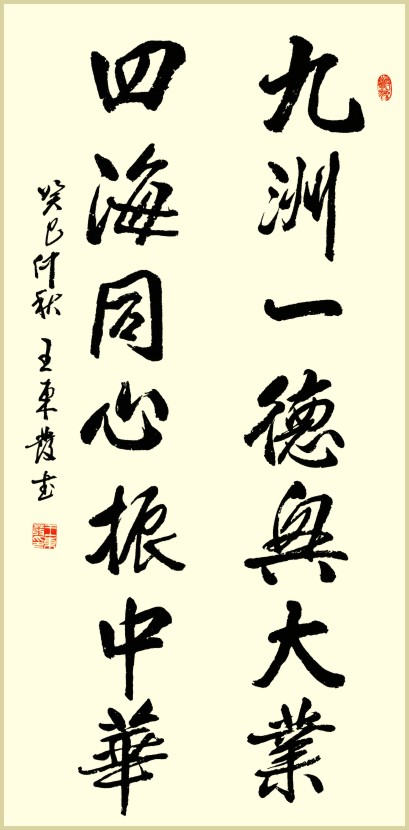 九洲一德興大業
四海同心振中華
癸巳仲秋 王東發書